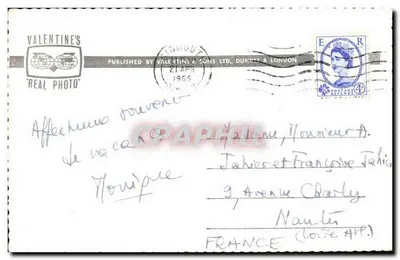 VALENTINE'S
"REAL PHOTO"
PUBLISHED BY VALENTINE & SONS LTD., DUNDEE & LONDON
21 APR
1965
E R
Affectueux souvenir
de vacances
Monique
CPARAMA
Madame, Monsieur A.
Jahier et Françoise Jahier
9, Avenue Charly
Nantes
FRANCE (Loire Att.)